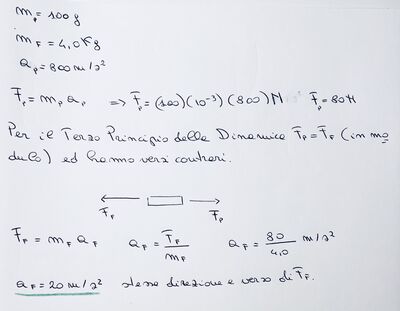 m_P = 100 g
m_F = 4,0 Kg
a_P = 800 m/s²
F̄_P = m_P a_P => F_P = (100)(10⁻³)(800) N F_P = 80 N
Per il Terzo Principio della Dinamica F̄_P = F̄_F (in mo
dulo) ed hanno versi contrari.
F_F F_P
F_F = m_F a_F a_F = F_F / m_F a_F = 80 / 4,0 m/s²
a_F = 20 m/s² stessa direzione e verso di F̄_F.